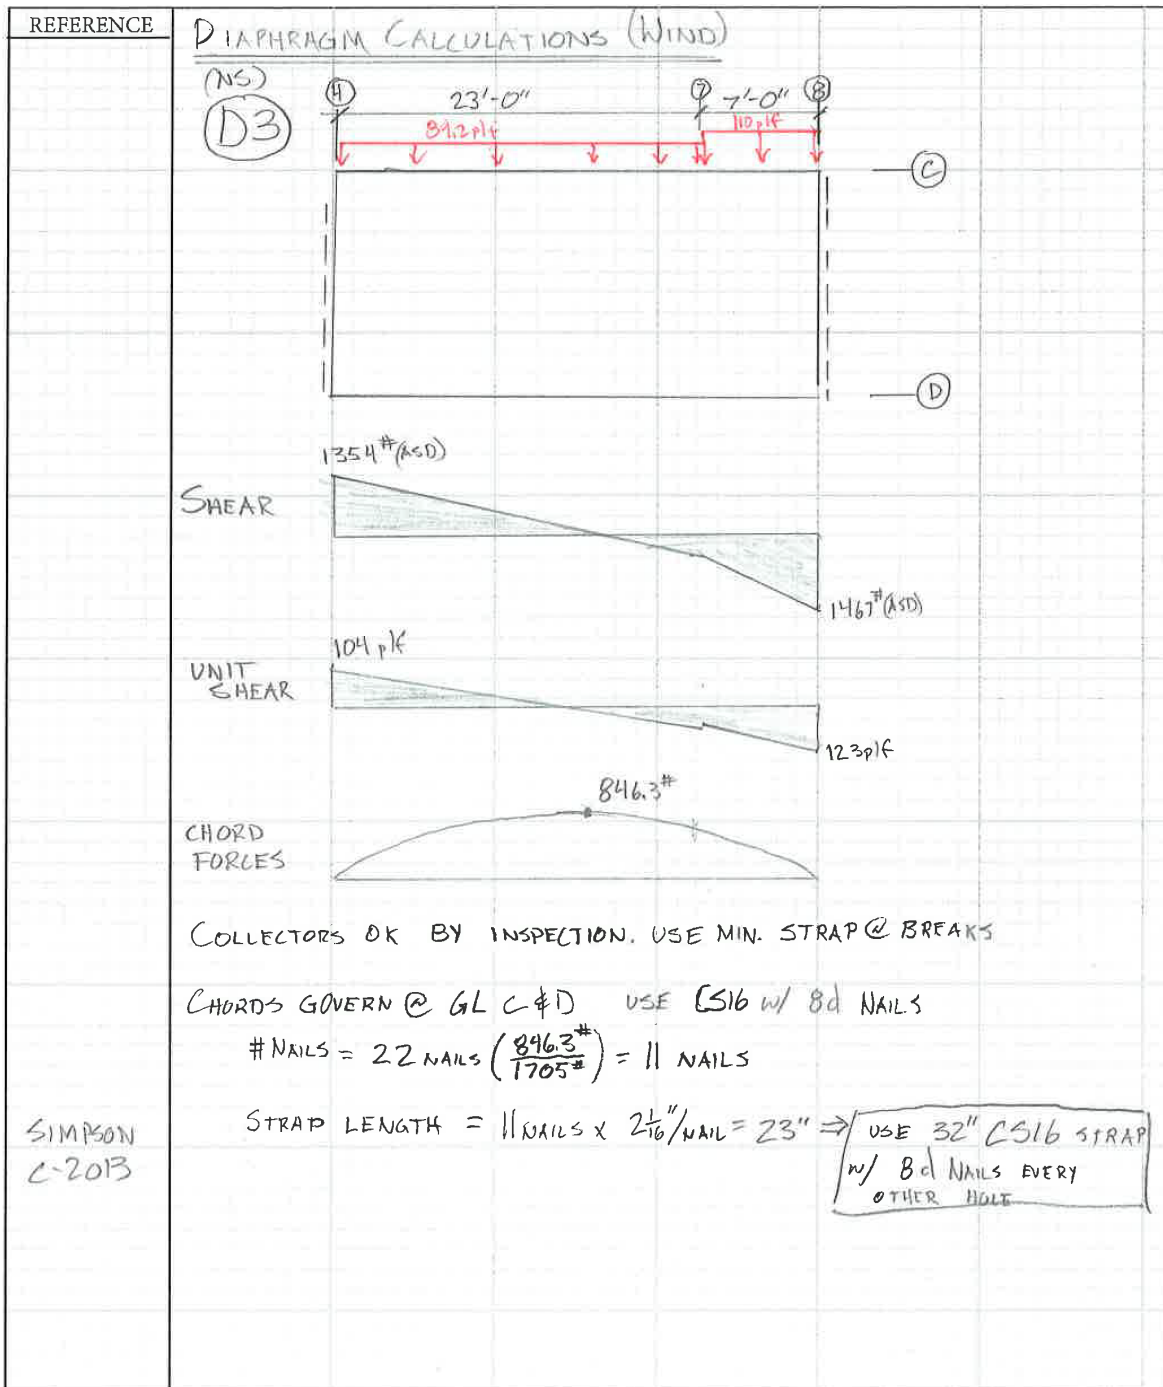 REFERENCE
DIAPHRAGM CALCULATIONS (WIND)
(NS)
D3
4 23'-0" 7 7'-0" 8
89.2 plf 110 plf
C
D
1354# (ASD)
SHEAR
1467# (ASD)
104 plf
UNIT
SHEAR
123 plf
846.3#
CHORD
FORCES
COLLECTORS OK BY INSPECTION. USE MIN. STRAP @ BREAKS
CHORDS GOVERN @ GL C & D USE CS16 w/ 8d NAILS
# NAILS = 22 NAILS (846.3# / 1705#) = 11 NAILS
SIMPSON
C-2013
STRAP LENGTH = 11 NAILS x 2 1/16"/NAIL = 23" ⇒ USE 32" CS16 STRAP
w/ 8d NAILS EVERY
OTHER HOLE